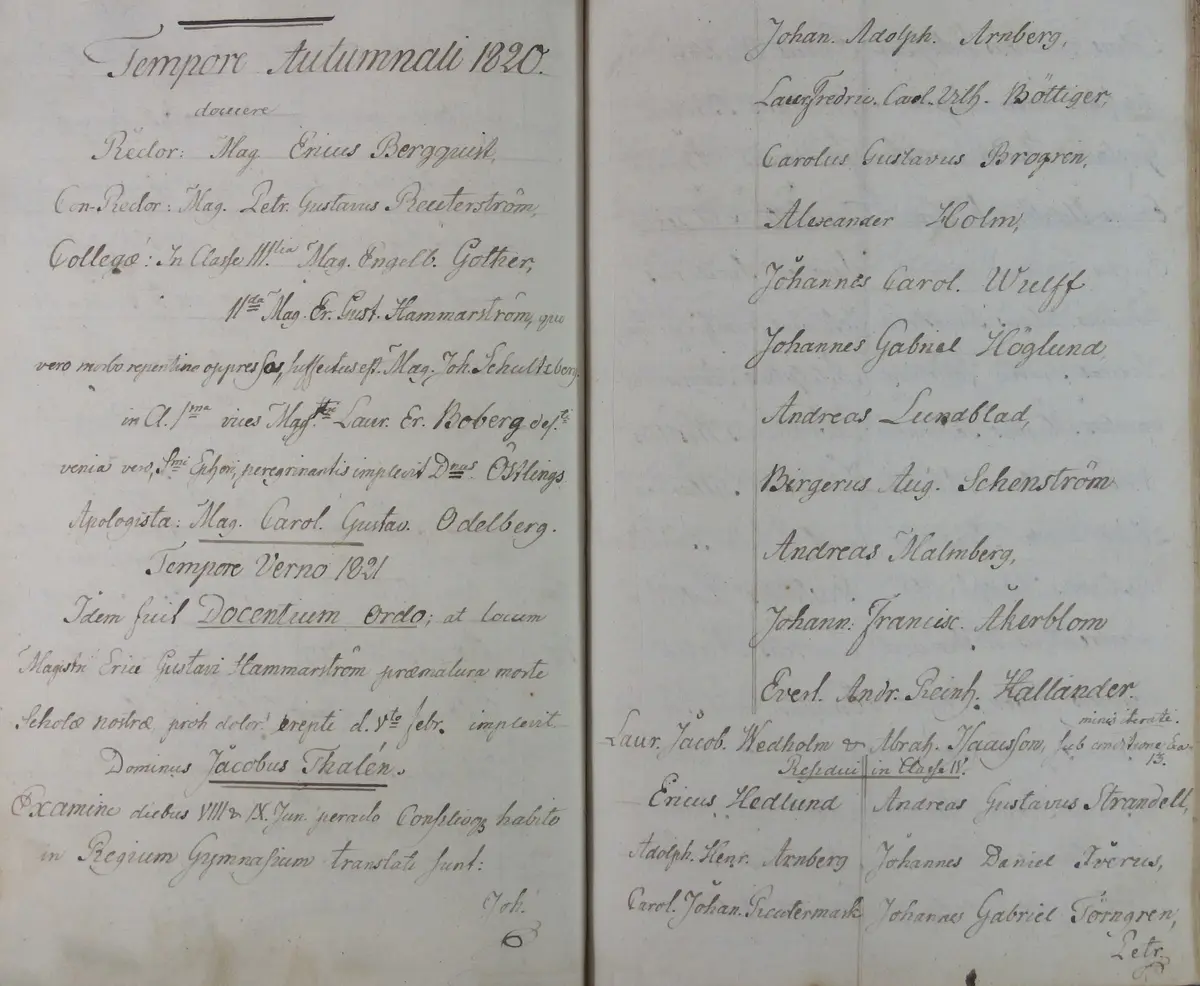 Tempore Autumnali 1820.
docuere
Rector: Mag Ericus Bergquist,
Con-Rector: Mag. Petr. Gustavus Reuterström,
Collegæ: In Classe III.tia Mag. Engelb. Gother,
IIda Mag. Er. Gust. Hammarström, quo
vero morbo repentino oppresso, suffectus est Mag. Joh. Schultzberg.
in Cl. Ima vices Mag. Laur. Er. Boberg
venia vero, Smi Ephori, peregrinantis implevit Dnus Östlings
Apologista: Mag. Carol. Gustav. Odelberg.
Tempore Verno 1821
Idem fuit Docentium Ordo; at locum
Magistri Erici Gustavi Hammarström præmatura morte
Scholæ nostræ, proh dolor! erepti d. Vto febr. implevit
Dominus Jacobus Thalén.
Examine diebus VIII & IX Jun. peracto Consilioq; habito
in Regium Gymnasium translati sunt:
Joh.
Johan. Adolph. Arnberg,
Laur. Fredric. Carl. Vilh. Böttiger,
Carolus Gustavus Brogren,
Alexander Holm,
Johannes Carol. Wulff
Johannes Gabriel Höglund
Andreas Lundblad,
Birgerus Aug. Schenström
Andreas Malmberg,
Johann: Francisc. Åkerblom
Everl. Andr. Reinh. Hallander.
Laur. Jacob. Wedholm & Abrah. Isaacsson, sub conditione
Residui in Classe IV.
Ericus Hedlund
Andreas Gustavus Strandell,
Adolph. Henr. Arnberg
Johannes Daniel Tvérus,
Carol. Johan. Reutermark
Johannes Gabriel Törngren,
Petr.